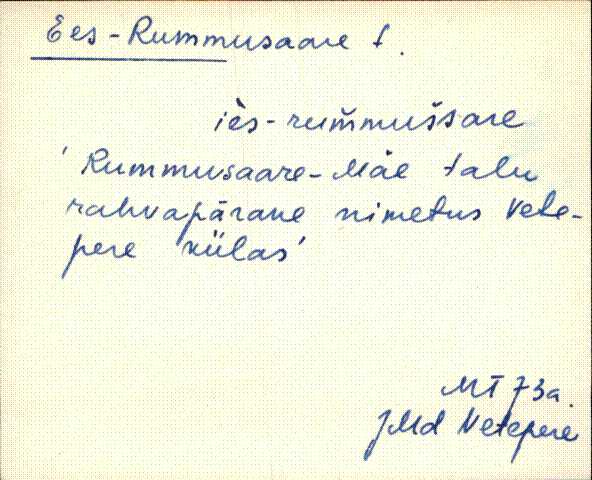 Ees-Rummusaare t.
iès-rum̌mušsare
'Rummusaare-Mäe talu
rahvapärane nimetus Vete-
pere külas'
MT 73a.
JMd Vetepere